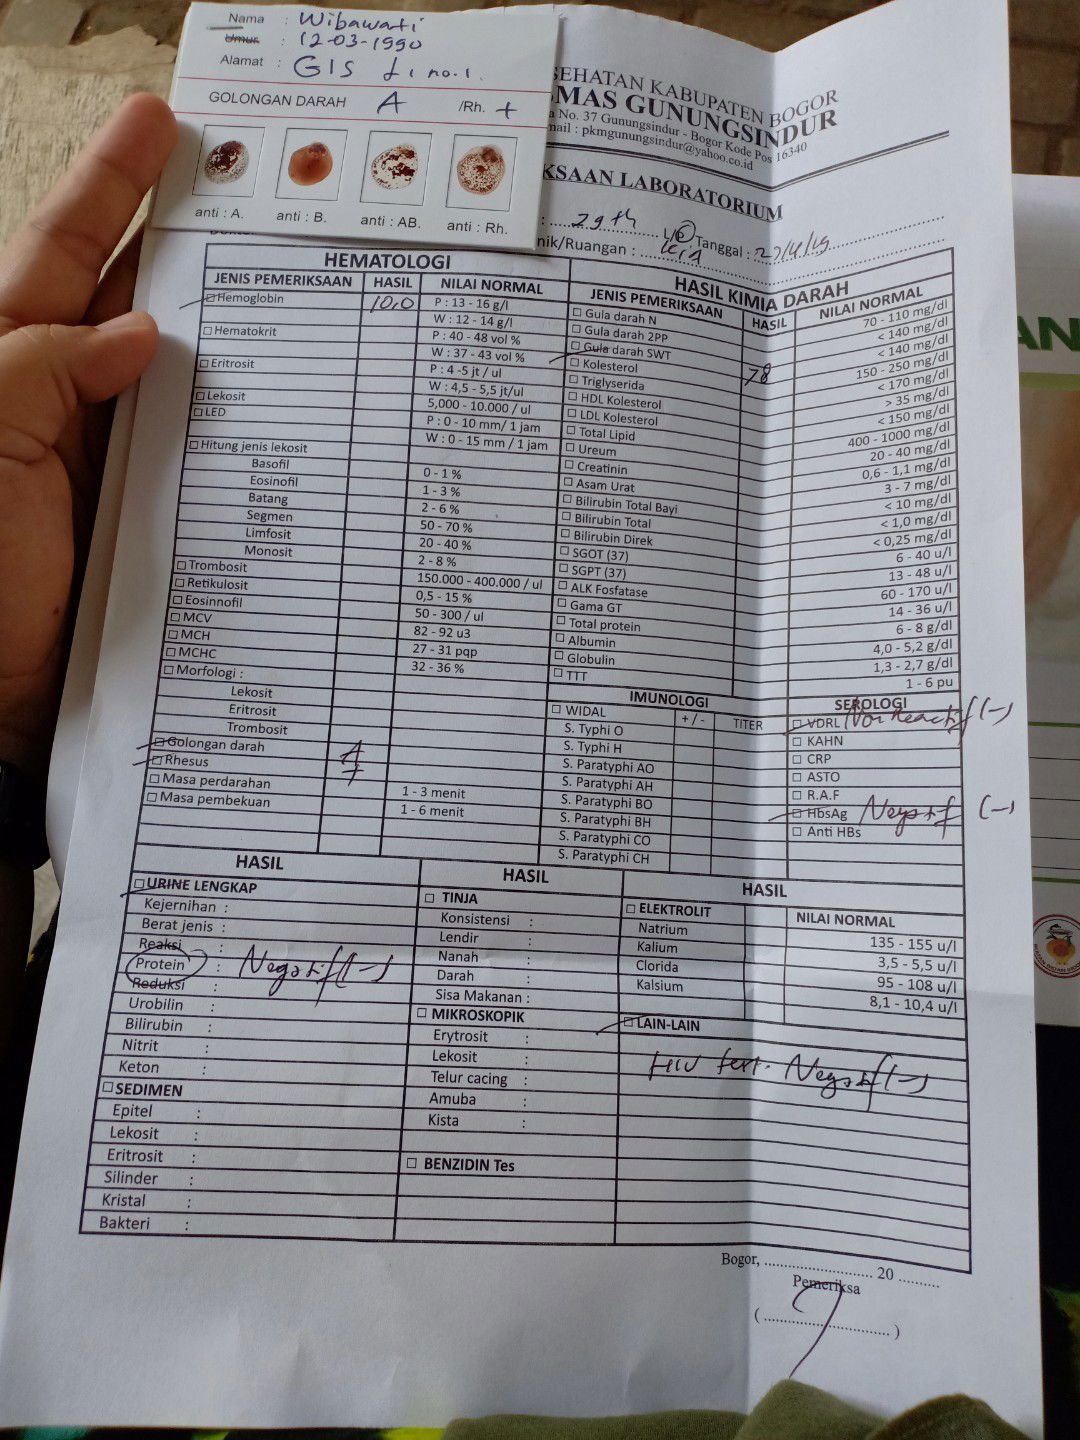 Nama : Wibawati
Umur : 12-03-1990
Alamat : GIS no.1.
GOLONGAN DARAH A /Rh. +
anti : A. anti : B. anti : AB. anti : Rh.
SEHATAN KABUPATEN BOGOR
MAS GUNUNGSINDUR
a No. 37 Gunungsindur - Bogor Kode Pos 16340
mail : pkmgunungsindur@yahoo.co.id
KSAAN LABORATORIUM
: 29 th L/P Tanggal :
nik/Ruangan :
HEMATOLOGI
JENIS PEMERIKSAAN HASIL NILAI NORMAL
Hemoglobin 10,0 P : 13 - 16 g/l
W : 12 - 14 g/l
Hematokrit P : 40 - 48 vol %
W : 37 - 43 vol %
Eritrosit P : 4 -5 jt / ul
W : 4,5 - 5,5 jt/ul
Lekosit 5,000 - 10.000 / ul
LED P : 0 - 10 mm/ 1 jam
W : 0 - 15 mm / 1 jam
Hitung jenis lekosit
Basofil 0 - 1 %
Eosinofil 1 - 3 %
Batang 2 - 6 %
Segmen 50 - 70 %
Limfosit 20 - 40 %
Monosit 2 - 8 %
Trombosit 150.000 - 400.000 / ul
Retikulosit 0,5 - 15 %
Eosinnofil 50 - 300 / ul
MCV 82 - 92 u3
MCH 27 - 31 pqp
MCHC 32 - 36 %
Morfologi :
Lekosit
Eritrosit
Trombosit
Golongan darah A
Rhesus +
Masa perdarahan 1 - 3 menit
Masa pembekuan 1 - 6 menit
HASIL KIMIA DARAH
JENIS PEMERIKSAAN HASIL NILAI NORMAL
Gula darah N 70 - 110 mg/dl
Gula darah 2PP < 140 mg/dl
Gula darah SWT 78 < 140 mg/dl
Kolesterol 150 - 250 mg/dl
Triglyserida < 170 mg/dl
HDL Kolesterol > 35 mg/dl
LDL Kolesterol < 150 mg/dl
Total Lipid 400 - 1000 mg/dl
Ureum 20 - 40 mg/dl
Creatinin 0,6 - 1,1 mg/dl
Asam Urat 3 - 7 mg/dl
Bilirubin Total Bayi < 10 mg/dl
Bilirubin Total < 1,0 mg/dl
Bilirubin Direk < 0,25 mg/dl
SGOT (37) 6 - 40 u/l
SGPT (37) 13 - 48 u/l
ALK Fosfatase 60 - 170 u/l
Gama GT 14 - 36 u/l
Total protein 6 - 8 g/dl
Albumin 4,0 - 5,2 g/dl
Globulin 1,3 - 2,7 g/dl
TTT 1 - 6 pu
IMUNOLOGI
WIDAL +/- TITER
S. Typhi O
S. Typhi H
S. Paratyphi AO
S. Paratyphi AH
S. Paratyphi BO
S. Paratyphi BH
S. Paratyphi CO
S. Paratyphi CH
SEROLOGI
VDRL Non Reactif (-)
KAHN
CRP
ASTO
R.A.F
HbsAg Negatif (-)
Anti HBs
HASIL
URINE LENGKAP
Kejernihan :
Berat jenis :
Reaksi :
Protein : Negatif (-)
Reduksi :
Urobilin :
Bilirubin :
Nitrit :
Keton :
SEDIMEN
Epitel :
Lekosit :
Eritrosit :
Silinder :
Kristal :
Bakteri :
HASIL
TINJA
Konsistensi :
Lendir :
Nanah :
Darah :
Sisa Makanan :
MIKROSKOPIK
Erytrosit :
Lekosit :
Telur cacing :
Amuba :
Kista :
BENZIDIN Tes
HASIL
ELEKTROLIT NILAI NORMAL
Natrium 135 - 155 u/l
Kalium 3,5 - 5,5 u/l
Clorida 95 - 108 u/l
Kalsium 8,1 - 10,4 u/l
LAIN-LAIN
HIV test. Negatif (-)
Bogor, .................... 20 ..........
Pemeriksa
(..............................)
AN